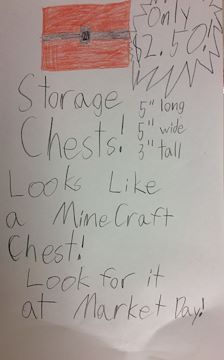 Only
$2.50!
Storage
Chests!
5" long
5" wide
3" tall
Looks Like
a MineCraft
Chest!
Look for it
at Market Day!